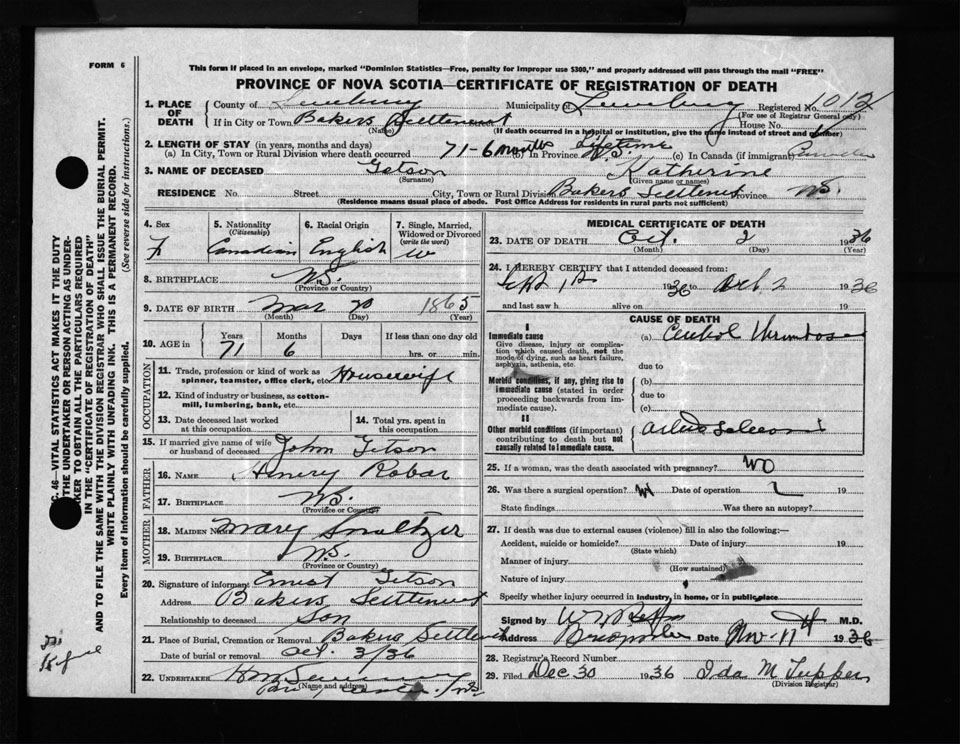 FORM 6
This form if placed in an envelope, marked "Dominion Statistics—Free, penalty for improper use $300," and properly addressed will pass through the mail "FREE"
PROVINCE OF NOVA SCOTIA—CERTIFICATE OF REGISTRATION OF DEATH
1. PLACE OF DEATH County of Lunenburg Municipality of Lunenburg Registered No. 1012
(For use of Registrar General only)
If in City or Town Bakers Settlement House No.
(Name) (If death occurred in a hospital or institution, give the name instead of street and number)
2. LENGTH OF STAY (in years, months and days)
(a) In City, Town or Rural Division where death occurred 71-6 months (b) in Province Lifetime N.S. (c) In Canada (if immigrant) Canada
3. NAME OF DECEASED Getson Katherine
(Surname) (Given name or names)
RESIDENCE No. Street City, Town or Rural Division Bakers Settlement Province N.S.
(Residence means usual place of abode. Post Office Address for residents in rural parts not sufficient)
4. Sex 5. Nationality (Citizenship) 6. Racial Origin 7. Single, Married, Widowed or Divorced (write the word)
F Canadian English W
8. BIRTHPLACE N.S.
(Province or Country)
9. DATE OF BIRTH Mar 20 1865
(Month) (Day) (Year)
10. AGE in Years Months Days If less than one day old
71 6 hrs. or min.
OCCUPATION
11. Trade, profession or kind of work as spinner, teamster, office clerk, etc. Housewife
12. Kind of industry or business, as cotton-mill, lumbering, bank, etc.
13. Date deceased last worked at this occupation 14. Total yrs. spent in this occupation
15. If married give name of wife or husband of deceased John Getson
FATHER
16. NAME Amery Robar
17. BIRTHPLACE N.S.
(Province or Country)
MOTHER
18. MAIDEN NAME Mary Smeltzer
19. BIRTHPLACE N.S.
(Province or Country)
20. Signature of informant Ernest Getson
Address Bakers Settlement
Relationship to deceased Son
21. Place of Burial, Cremation or Removal Bakers Settlement
Date of burial or removal Oct. 3/36
22. UNDERTAKER
(Name and address)
MEDICAL CERTIFICATE OF DEATH
23. DATE OF DEATH Oct. 2 1936
(Month) (Day) (Year)
24. I HEREBY CERTIFY that I attended deceased from:
Sept 1st 1936 to Oct. 2 1936
and last saw h alive on 19
CAUSE OF DEATH
I
Immediate cause (a) Cerebral Thrombosis
Give disease, injury or complication which caused death, not the mode of dying, such as heart failure, asphyxia, asthenia, etc.
due to
Morbid conditions, if any, giving rise to immediate cause (stated in order proceeding backwards from immediate cause).
(b)
due to
(c)
II
Other morbid conditions (if important) contributing to death but not causally related to immediate cause.
25. If a woman, was the death associated with pregnancy? No
26. Was there a surgical operation? Date of operation 19
State findings Was there an autopsy?
27. If death was due to external causes (violence) fill in also the following:—
Accident, suicide or homicide? Date of injury 19
(State which)
Manner of injury
(How sustained)
Nature of injury
Specify whether injury occurred in industry, in home, or in public place
Signed by M.D.
Address Date Nov. 11th 1936
28. Registrar's Record Number
29. Filed Dec 30 1936 Ida M Tupper
(Division Registrar)
C. 46—VITAL STATISTICS ACT MAKES IT THE DUTY
THE UNDERTAKER OR PERSON ACTING AS UNDER-
KER TO OBTAIN ALL THE PARTICULARS REQUIRED
IN THE "CERTIFICATE OF REGISTRATION OF DEATH"
AND TO FILE THE SAME WITH THE DIVISION REGISTRAR WHO SHALL ISSUE THE BURIAL PERMIT.
WRITE PLAINLY WITH UNFADING INK. THIS IS A PERMANENT RECORD.
Every item of information should be carefully supplied. (See reverse side for instructions.)